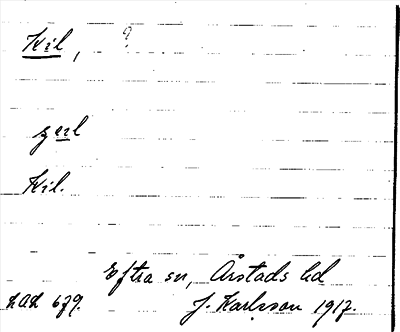 Kil, ?
Kil.
Eftra sn, Årstads hd
LAL 679. J. Karlsson 1917.